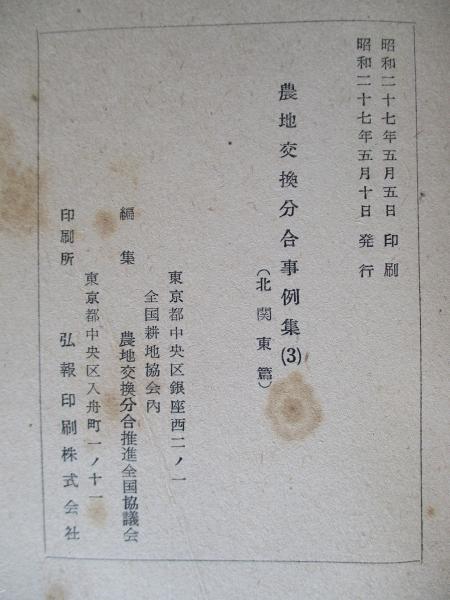 昭和二十七年五月五日 印刷
昭和二十七年五月十日 発行
農地交換分合事例集(3)
(北関東篇)
東京都中央区銀座西二ノ一
全国耕地協会内
編集 農地交換分合推進全国協議会
東京都中央区入舟町一ノ十一
印刷所 弘報印刷株式会社